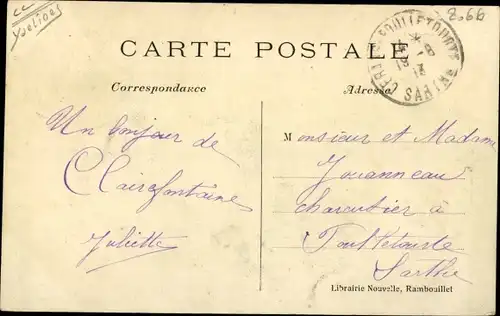 cc
Yvelines
2.66
CARTE POSTALE
Correspondance
Adresse
SARTHE
Un bonjour de
Clairefontaine
Juliette
Monsieur et Madame
Jouanneau
charcutier à
Foultetourte
Sarthe
Librairie Nouvelle, Rambouillet